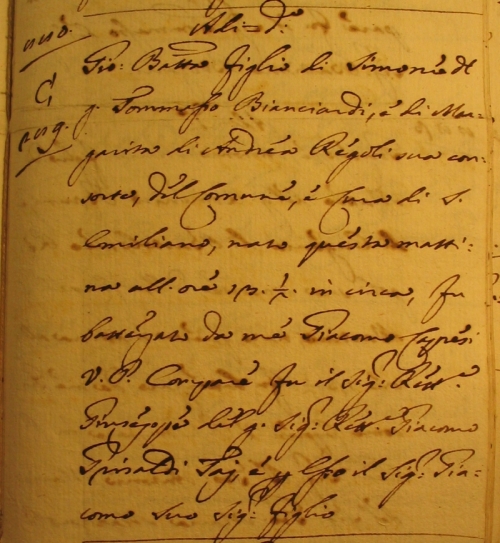 Adi d.º
Gio: Batta figlio di Simone del
q. Tommaso Bianciardi, è di Mar-
garita di Andrea Regoli sua con-
sorte, del Comune, è Cura di S.
Emiliano, nato questa matti-
na all. ore ½ in circa, fu
battezzato da me Giacomo
V. P. Compare fu il Sig.
Giuseppe del q. Sig. Giacomo
Grisaldi Taj, è p Esso il Sig. Gia-
como suo Sig. figlio